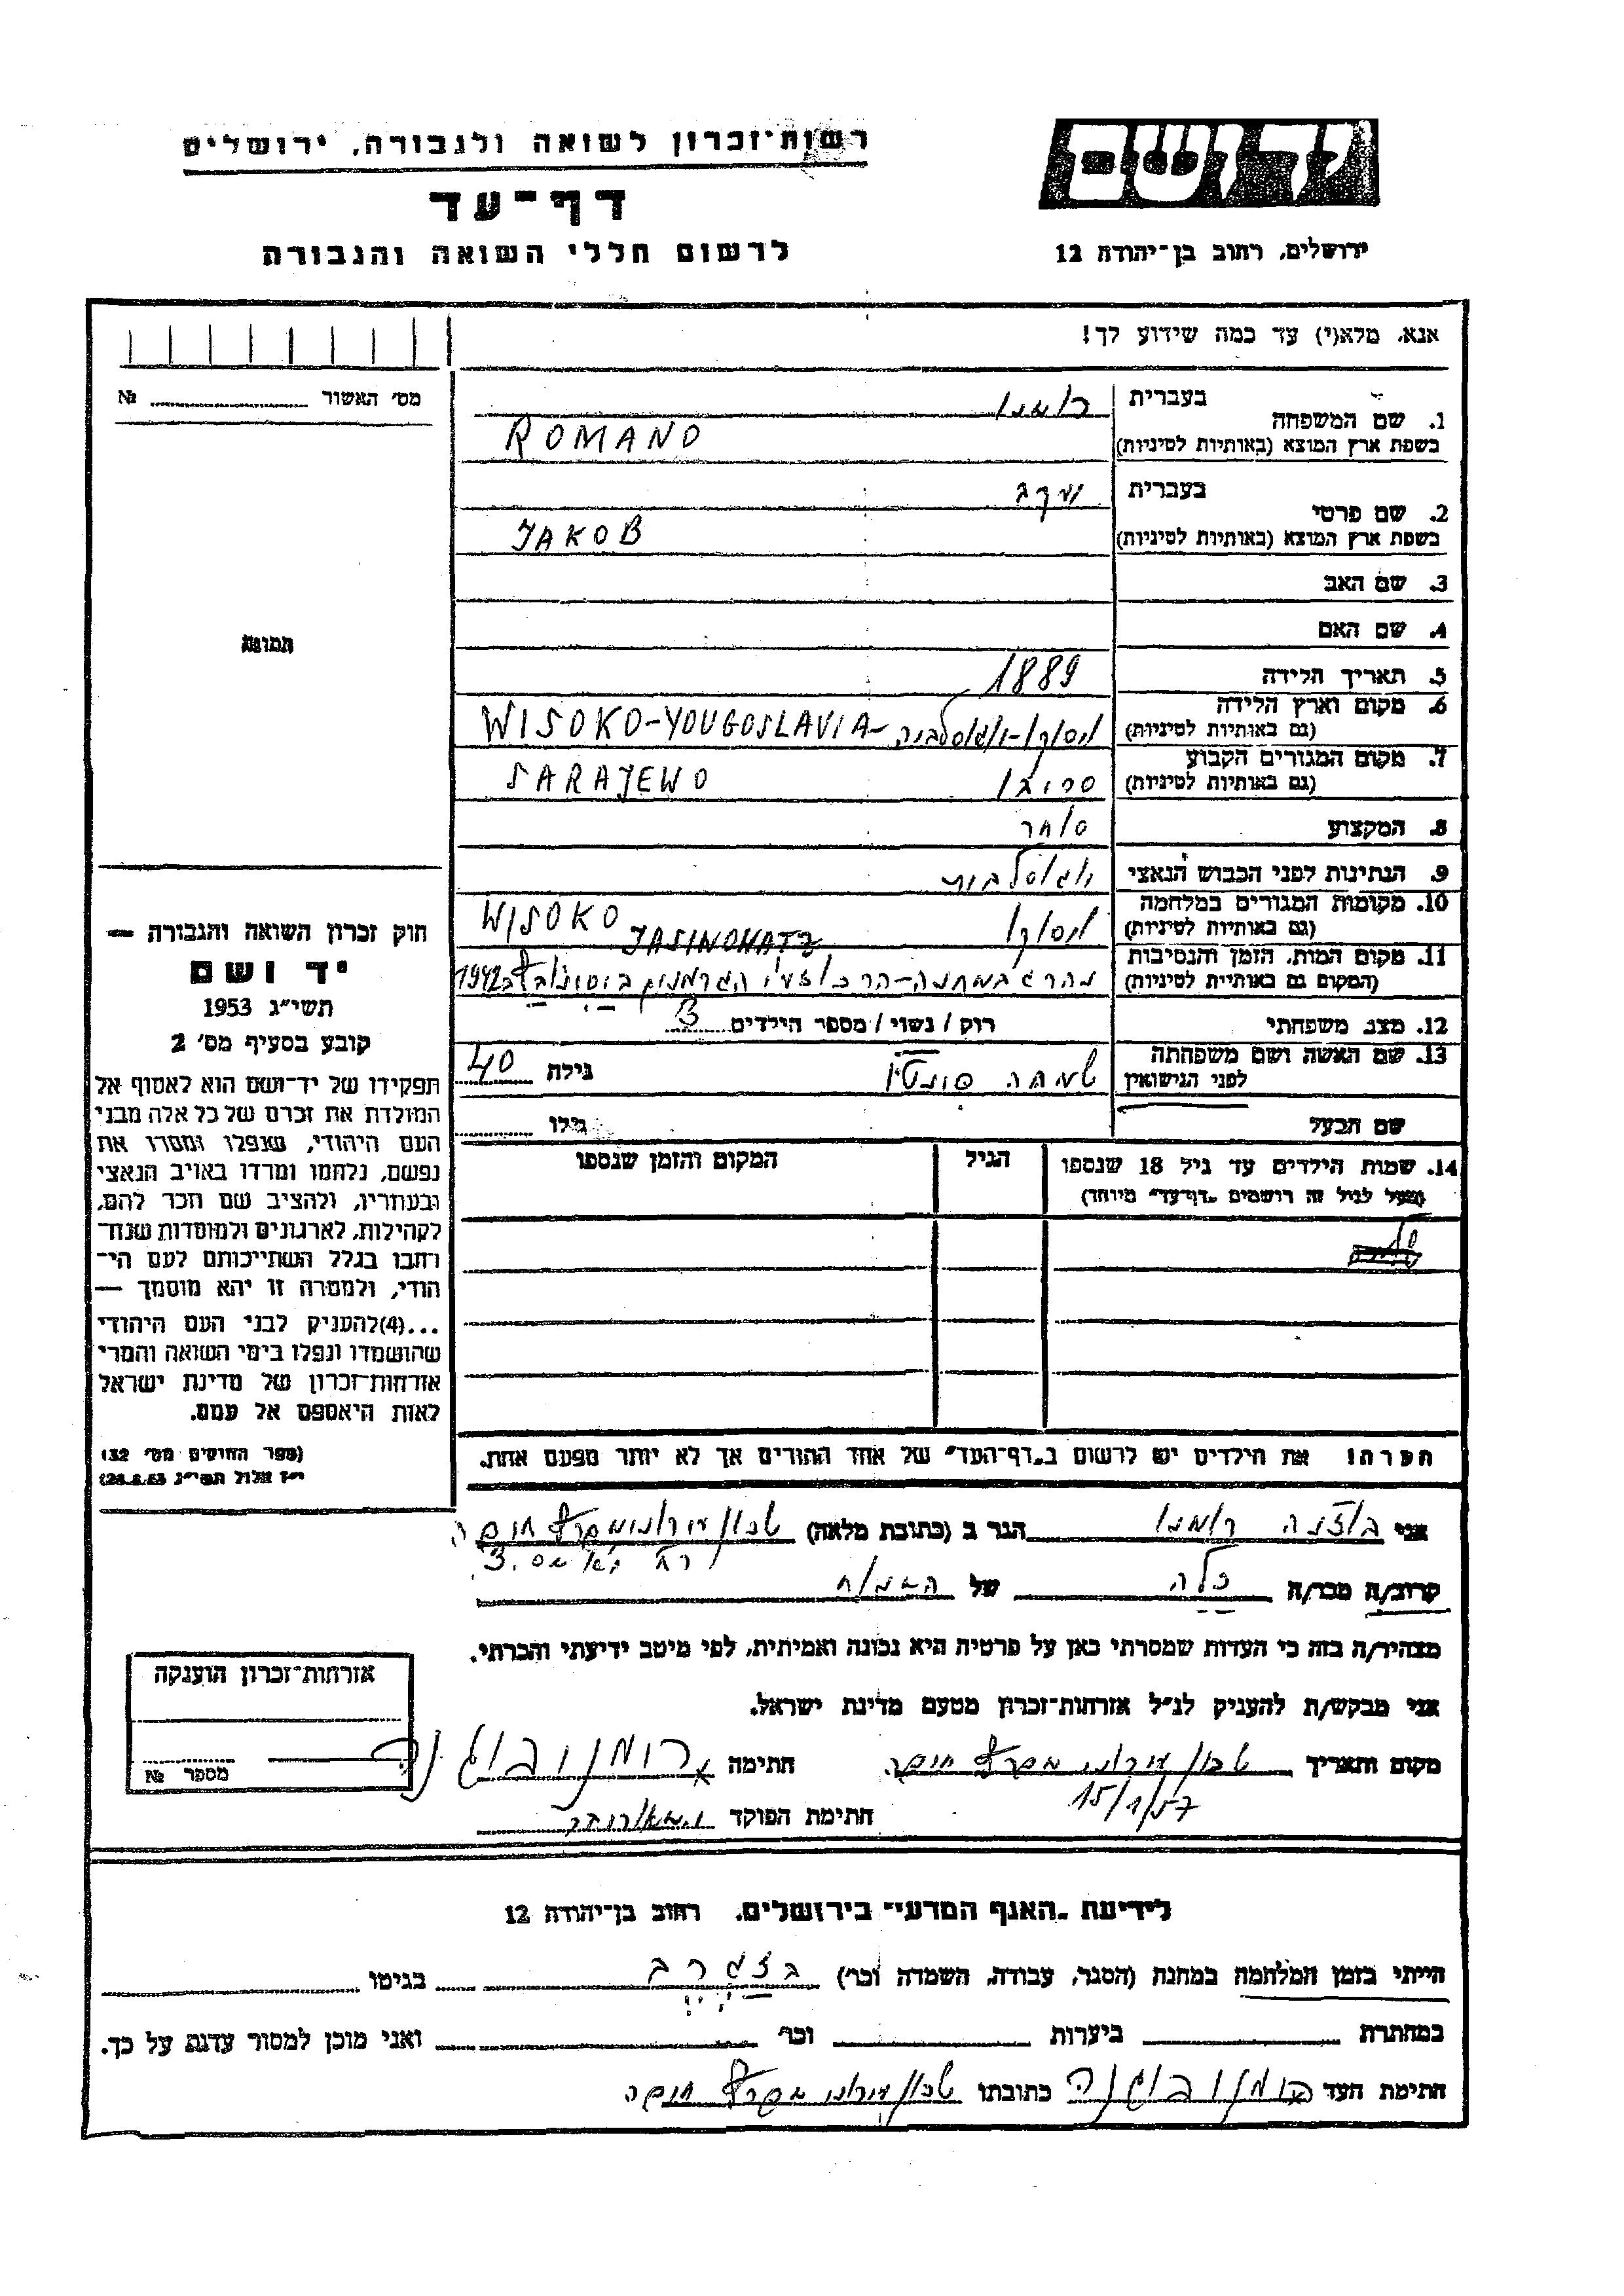 רשות־זכרון לשואה ולגבורה, ירושלים
יד ושם
דף־עד
לרשום חללי השואה והגבורה
ירושלים, רחוב בן־יהודה 12
אנא, מלא(י) עד כמה שידוע לך!
מס׳ האשור № 
תמונה
1. שם המשפחה
בעברית רומנו
בשפת ארץ המוצא (באותיות לטיניות) ROMANO
2. שם פרטי
בעברית יעקב
בשפת ארץ המוצא (באותיות לטיניות) JAKOB
3. שם האב
4. שם האם
5. תאריך הלידה 1889
6. מקום וארץ הלידה
(גם באותיות לטיניות) ויסוקו-יוגוסלביה - WISOKO-YOUGOSLAVIA
7. מקום המגורים הקבוע
(גם באותיות לטיניות) SARAJEWO
8. המקצוע סוחר
9. הנתינות לפני הכבוש הנאצי יוגוסלבית
10. מקומות המגורים במלחמה
(גם באותיות לטיניות) ויסוקו WISOKO
11. מקום המות, הזמן והנסיבות JASINOHATZ
(המקום גם באותיית לטיניות) נהרג במחנה-הרכוז ע״י הגרמנים ב 1942
12. מצב משפחתי רוק / נשוי / מספר הילדים 3
13. שם האשה ושם משפחתה
לפני הנישואין שמחה גילה 40
שם הבעל גילו
14. שמות הילדים עד גיל 18 שנספו
(מעל לגיל זה רושמים „דף־עד״ מיוחד)
הגיל
המקום והזמן שנספו
הערה! את הילדים יש לרשום ב„דף־העד״ של אחד ההורים אך לא יותר מפעם אחת.
חוק זכרון השואה והגבורה —
יד ושם
תשי״ג 1953
קובע בסעיף מס׳ 2
תפקידו של יד־ושם הוא לאסוף אל
המולדת את זכרם של כל אלה מבני
העם היהודי, שנפלו ומסרו את
נפשם, נלחמו ומרדו באויב הנאצי
ובעוזריו, ולהציב שם וזכר להם,
לקהילות, לארגונים ולמוסדות שנח־
רבו בגלל השתייכותם לעם הי־
הודי, ולמטרה זו יהא מוסמך —
...(4)להעניק לבני העם היהודי
שהושמדו ונפלו בימי השואה והמרי
אזרחות־זכרון של מדינת ישראל
לאות היאספם אל עמם.
(ספר החוקים מס׳ 132
י״ז אלול תשי״ג 28.8.53)
אני רומנו הגר ב (כתובת מלאה) שכון עירוני חיפה
קרוב/ה מכר/ה כלה של המנוח
מצהיר/ה בזה כי העדות שמסרתי כאן על פרטיה היא נכונה ואמיתית, לפי מיטב ידיעתי והכרתי.
אני מבקש/ת להעניק לנ״ל אזרחות־זכרון מטעם מדינת ישראל.
מקום ותאריך שכון עירוני חיפה חתימה רומנו
15/1/57
חתימת הפוקד
אזרחות־זכרון הוענקה
מספר №
לידיעת „האגף המדעי״ בירושלים, רחוב בן־יהודה 12
הייתי בזמן המלחמה במחנה (הסגר, עבודה, השמדה וכו׳) בזגרב בגיטו
במחתרת ביערות וכו׳ ואני מוכן למסור עדות על כך.
חתימת העד רומנו כתובתו שכון עירוני חיפה